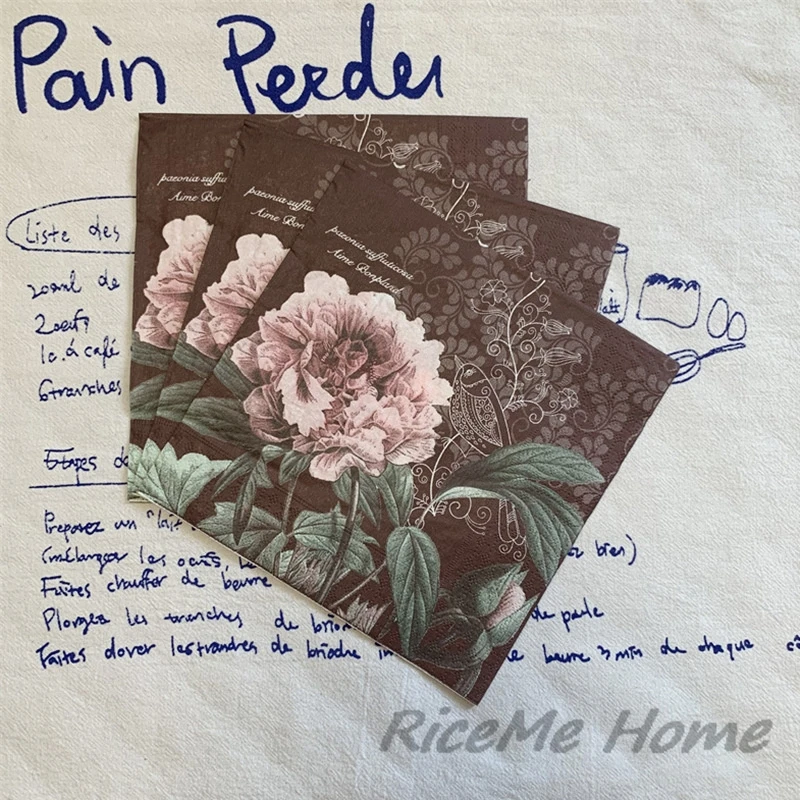 Pain Perdu
paeonia suffru
Aime Bon
paeonia suffru
Aime Bon
paeonia suffruticosa
Aime Bonpland
Liste des
200ml de
lait
2 oeufs
1c. à café
6 tranches
Etapes de
Preparez un "lait
(mélanger les oeufs, bien)
Faites chauffer de beurre
Plongez les tranches de brio de poele
Faites dorer les tranches de brioche beurre 3 min de chaque
RiceMe Home